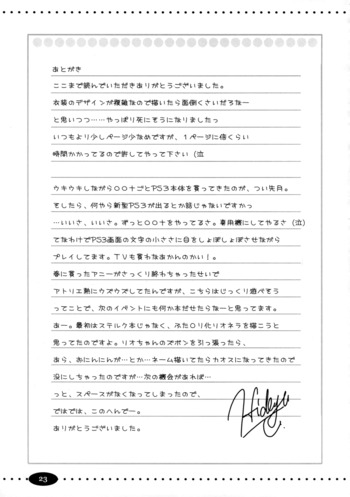 あとがき
ここまで読んでいただきありがとうございました。
衣装のデザインが複雑なので描いたら面倒くさいだろなー
と思いつつ……やっぱり死にそうになりましたっ
いつもより少しページ少なめですが、1ページに倍くらい
時間かかってるので許してやって下さい（泣
ウキウキしながら○○＋ごとPS3本体を買ってきたのが、つい先月。
そしたら、何やら新型PS3が出るとか話じゃないですかっ
…いいさ、いいさ。ずっと○○＋をやってるさ。専用機にしてやるさ（泣）
てなわけでPS3画面の文字の小ささに目をしょぼしょぼさせながら
プレイしてます。TVも買わなあかんのかい！。
春に買ったアニーがさっくり終わちゃったせいで
アトリエ熱にウズウズしてたんですが、こちらはじっくり遊べそう
ってことで、次のイベントにも何か本だせたらなーと思ってます。
あー。最初はステルク本じゃなく、ふたOリ化リオネラを描こうと
思ってたのですよ。リオちゃんのズボンを引っ張ったら、
あら、おにんにんが…とか…ネーム描いてたらカオスになってきたので
没にしちゃったのですが…次の機会があれば…
っと、スペースがなくなってしまったので、
ではでは、このへんでー。
ありがとうございました。
Hideyu
23